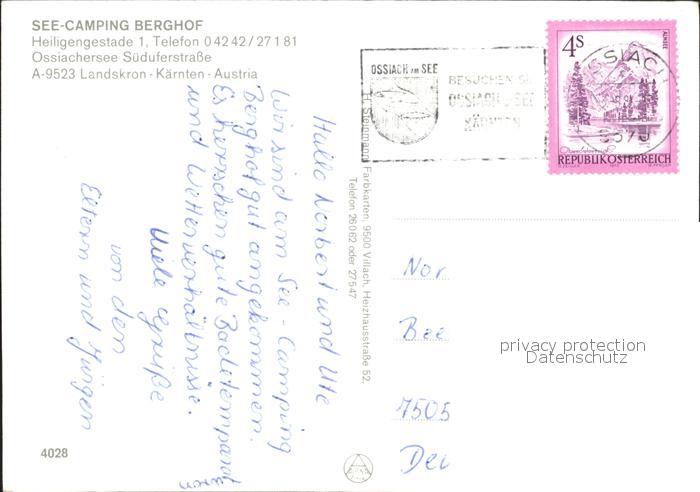 SEE-CAMPING BERGHOF
Heiligengestade 1, Telefon 0 42 42 / 27 1 81
Ossiachersee Süduferstraße
A-9523 Landskron · Kärnten · Austria
Hallo Norbert und Ute
Wir sind am See-Camping
Berghof gut angekommen.
Es herrschen gute Badetemparat
uren
und Witterverhältnisse.
Viele Grüße
von den
Eltern und Jürgen
4028
Farbkarten, 9500 Villach, Heizhausstraße 52,
Telefon 26062 oder 27547
OSSIACH am SEE
BESUCHEN SIE
OSSIACH SEE
KÄRNTEN
4s
ALMSEE
OSSIACH
9570
REPUBLIK ÖSTERREICH
Nor
Bee
7505
Deu
privacy protection
Datenschutz